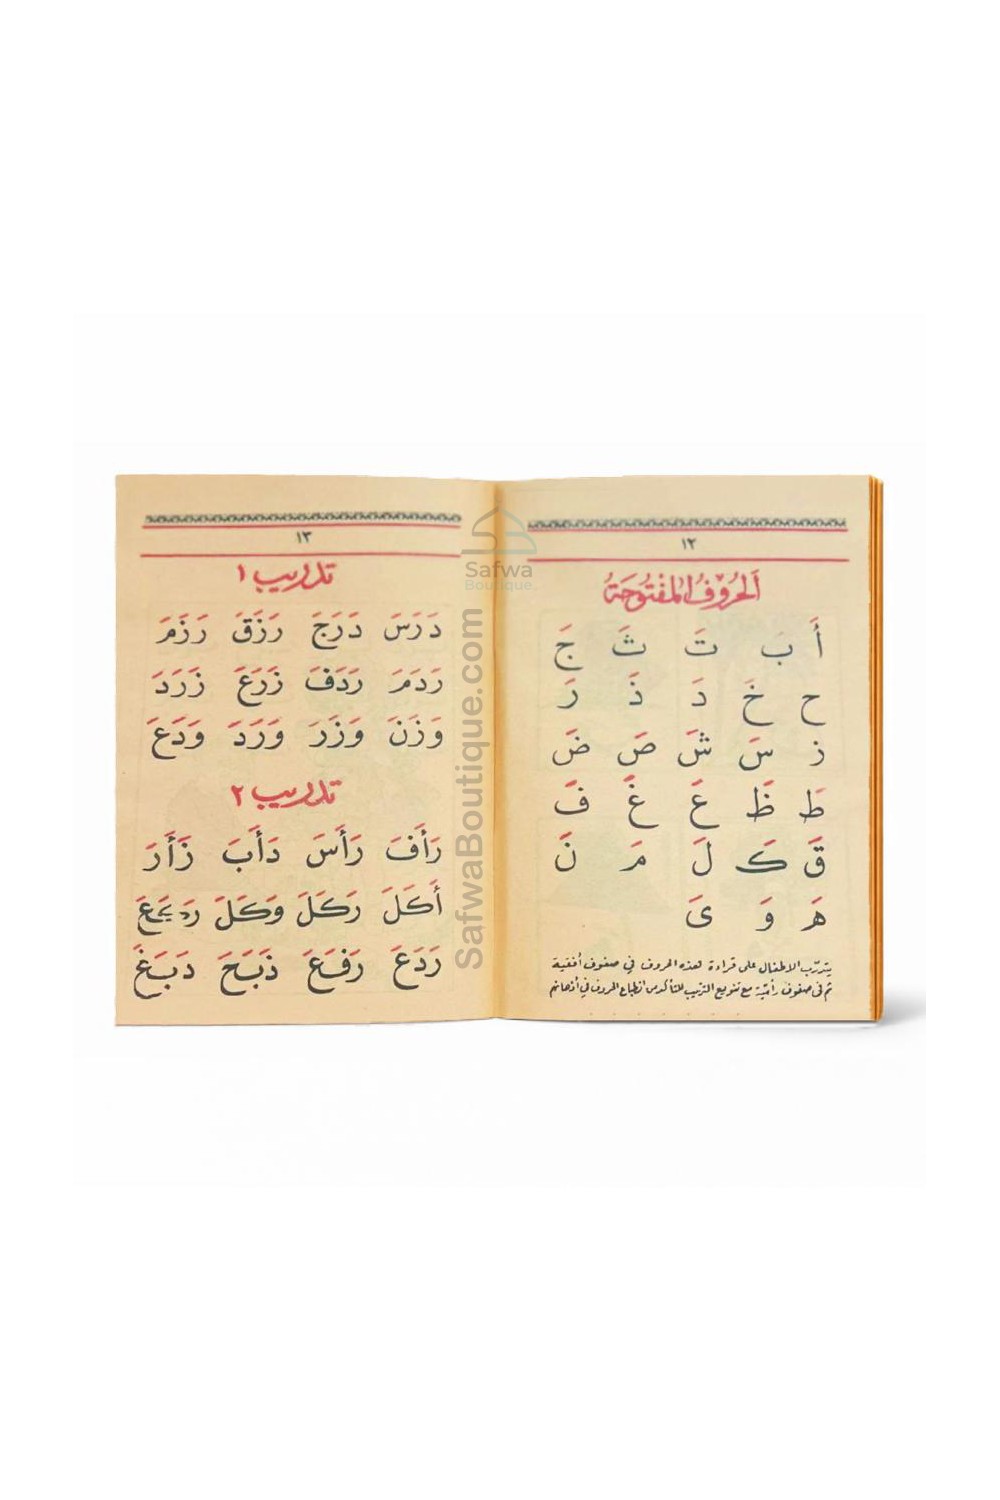 ١٢
اَلحُرُوْفُ المَفْتُوْحَةُ
أَ بَ تَ ثَ جَ
ح خَ دَ ذَ رَ
ز سَ شَ صَ ضَ
طَ ظَ عَ غَ فَ
قَ كَ لَ مَ نَ
هَ وَ ىَ
يتدرّب الاطفال على قراءة هذه الحروف في صفوف أفقية
ثم فى صفوف رأسيّة مع تنويع الترتيب للتأكد من انطباع الحروف في أذهانهم
١٣
تدريب ١
دَرَسَ دَرَجَ رَزَقَ رَزَمَ
رَدَمَ رَدَفَ زَرَعَ زَرَدَ
وَزَنَ وَزَرَ وَرَدَ وَدَعَ
تدريب ٢
رَأَفَ رَأَسَ دَأَبَ زَأَرَ
أَكَلَ رَكَلَ وَكَلَ
رَدَعَ رَفَعَ ذَبَحَ دَبَغَ
Safwa
Boutique
SafwaBoutique.com